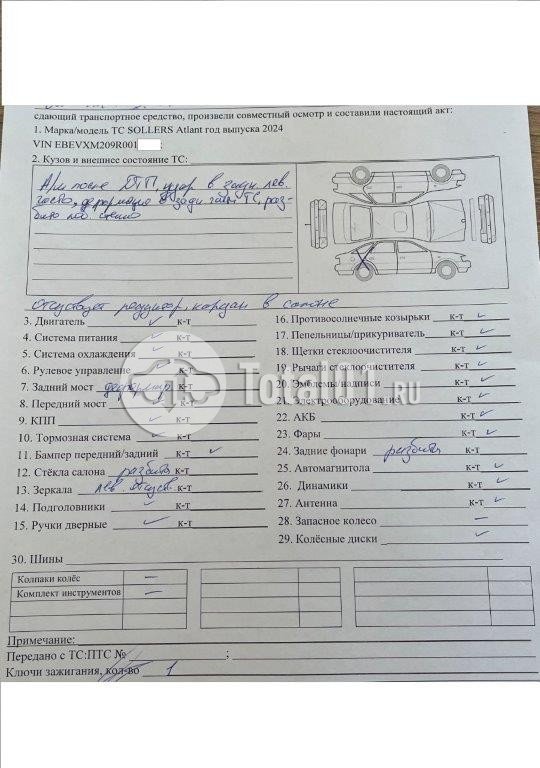 сдающий транспортное средство, произвели совместный осмотр и составили настоящий акт:
1. Марка/модель ТС SOLLERS Atlant год выпуска 2024
VIN EBEVXM209R001 ;
2. Кузов и внешнее состояние ТС:
А/м после ДТП, удар в задн. лев.
часть, деформация задн. части ТС, раз-
бито стекло
Отсутствует редуктор, кардан в салоне
3. Двигатель ✓ к-т
4. Система питания ✓ к-т
5. Система охлаждения ✓ к-т
6. Рулевое управление ✓ к-т
7. Задний мост деформир. к-т
8. Передний мост ✓ к-т
9. КПП ✓ к-т
10. Тормозная система ✓ к-т
11. Бампер передний/задний ✓ к-т
12. Стёкла салона разбито к-т
13. Зеркала лев. отсутств. к-т
14. Подголовники ✓ к-т
15. Ручки дверные ✓ к-т
16. Противосолнечные козырьки к-т ✓
17. Пепельницы/прикуриватель к-т ✓
18. Щетки стеклоочистителя к-т ✓
19. Рычаги стеклоочистителя к-т ✓
20. Эмблемы/надписи к-т ✓
21. Электрооборудование к-т ✓
22. АКБ к-т ✓
23. Фары к-т ✓
24. Задние фонари разбиты к-т
25. Автомагнитола к-т ✓
26. Динамики к-т ✓
27. Антенна к-т ✓
28. Запасное колесо —
29. Колёсные диски ✓
30. Шины
Колпаки колёс —
Комплект инструментов —
Примечание:
Передано с ТС:ПТС № ;
Ключи зажигания, кол-во 1
Total01.ru